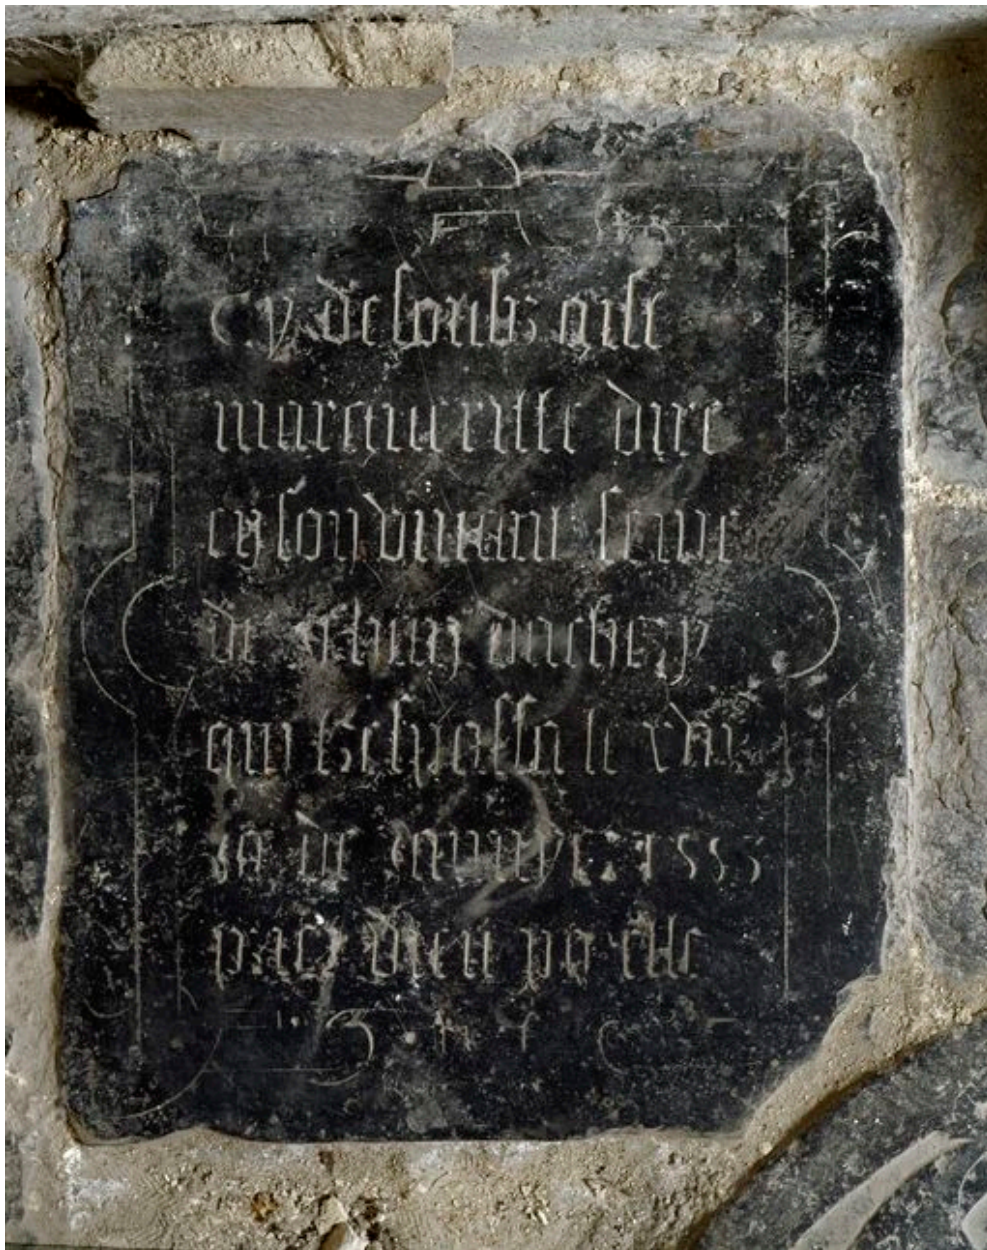 cy desoubz gist
margueritte dire
en son vivant feme
de duchesy
qui trespassa le
jo de 1555
pries dieu po elle